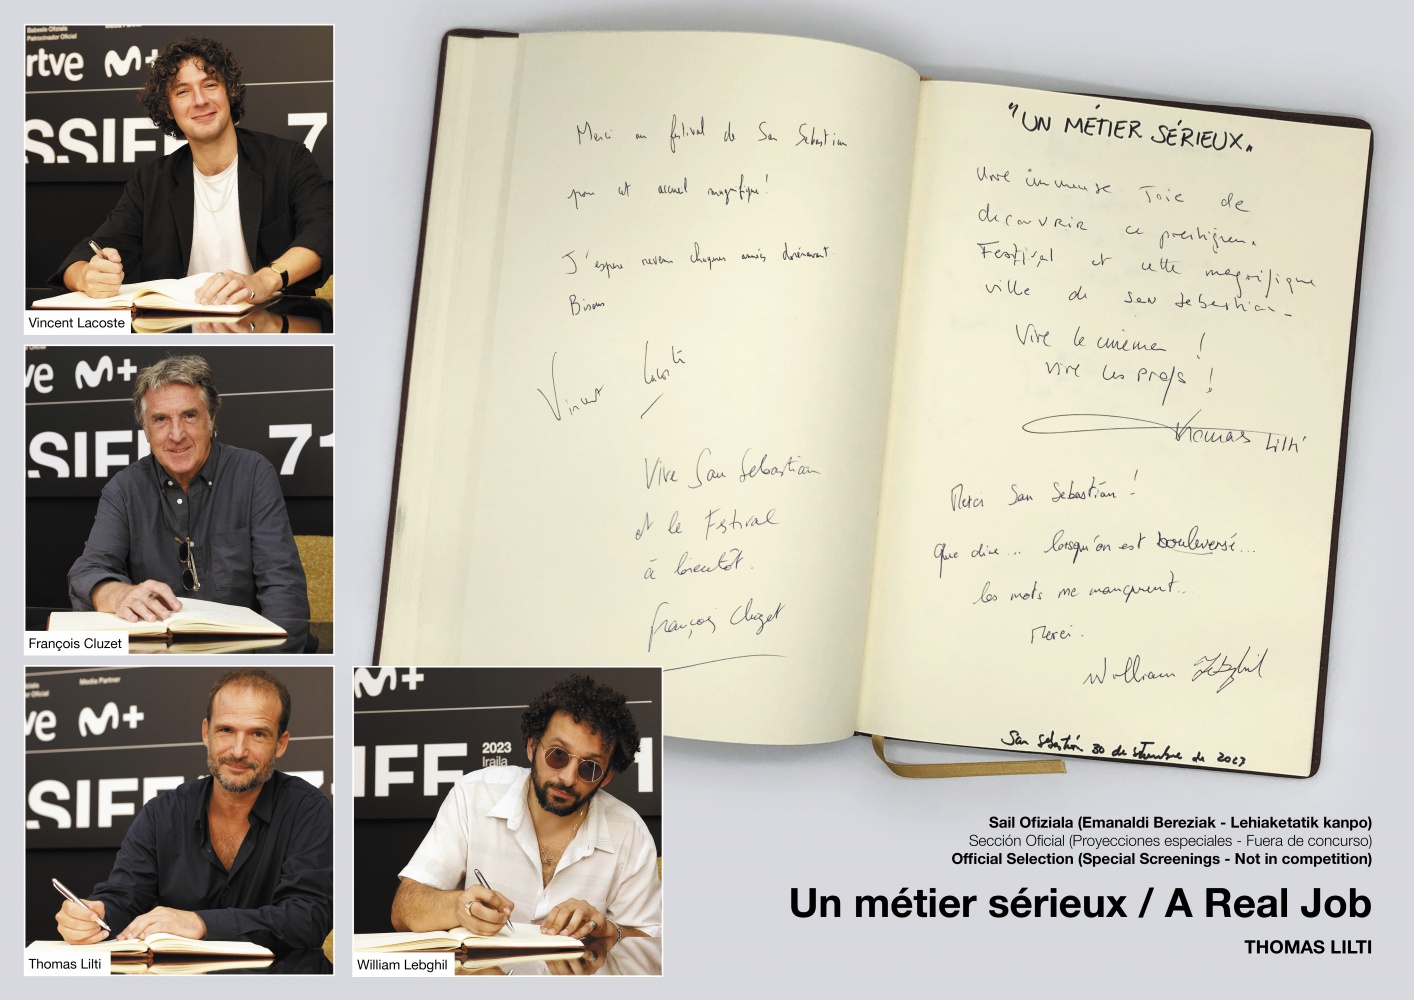 Babesle Ofiziala
Patrocinador Oficial
rtve M+
SSIFF 7
Vincent Lacoste
ve M+
SSIFF 71
François Cluzet
Media Partner
ve M+
SSIFF
Thomas Lilti
M+
IFF 2023
Iraila
1
William Lebghil
Merci au festival de San Sebastian
pour cet accueil magnifique!
J'espère revenir chaques années dorénavant.
Bisous
Vincent Lacoste
Vive San Sebastian
et le Festival
à bientôt.
François Cluzet
"UN MÉTIER SÉRIEUX"
Une immense Joie de
decouvrir ce prestigieux
Festival et cette magnifique
ville de San Sebastian
Vive le cinéma !
Vive les profs !
Thomas Lilti
Merci San Sebastián !
Que dire... lorsqu'on est bouleversé...
les mots me manquent...
Merci.
William Lebghil
San Sebastián 30 de setiembre de 2023
Sail Ofiziala (Emanaldi Bereziak - Lehiaketatik kanpo)
Sección Oficial (Proyecciones especiales - Fuera de concurso)
Official Selection (Special Screenings - Not in competition)
Un métier sérieux / A Real Job
THOMAS LILTI